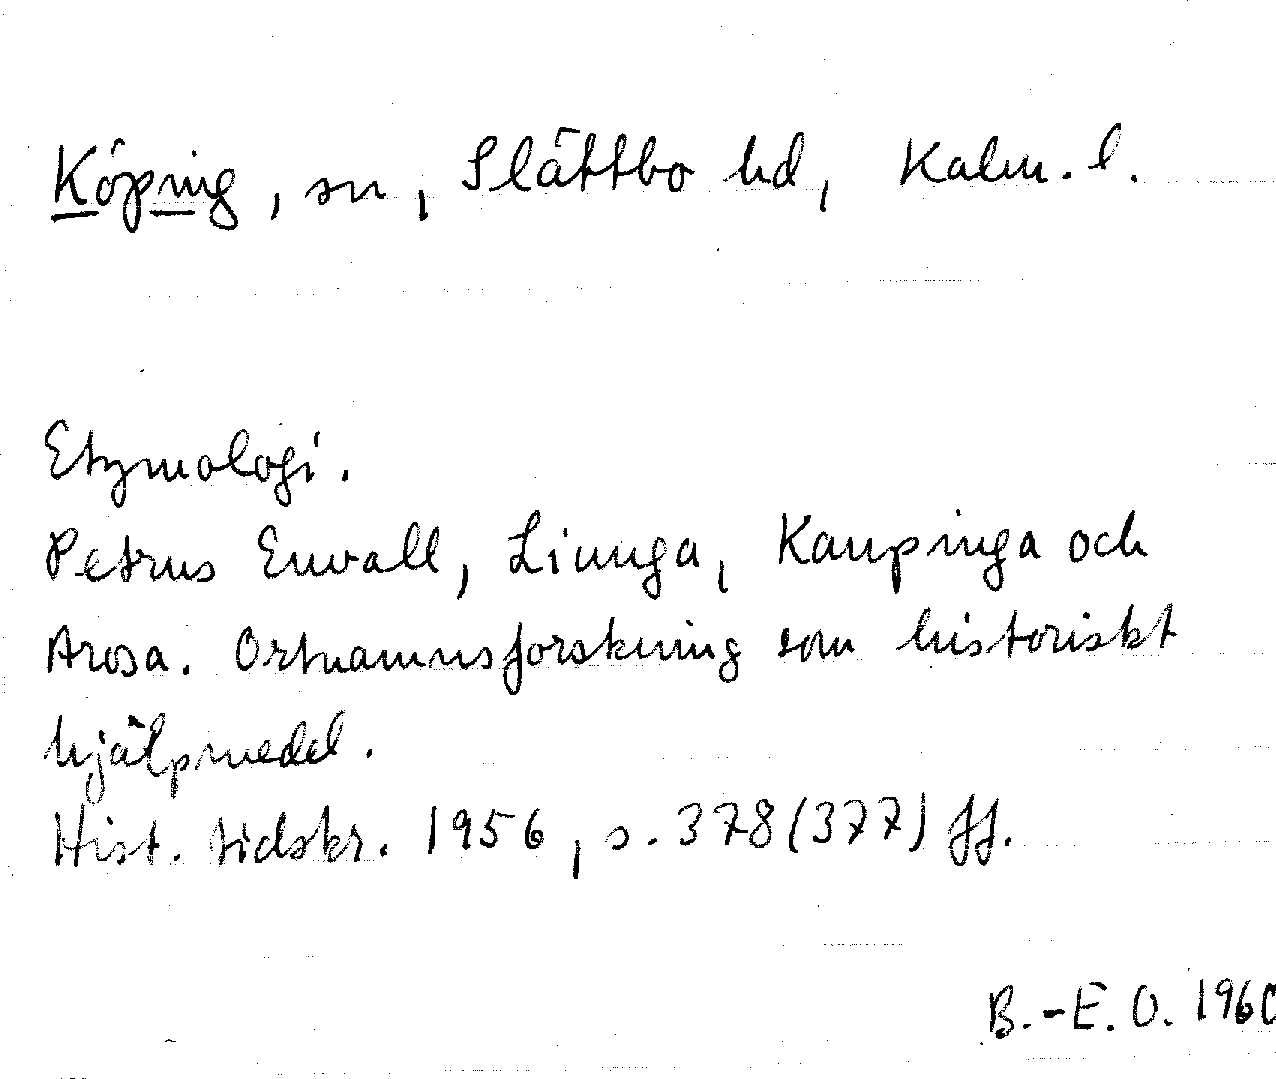 Köping, sn, Slättbo hd, Kalm. l.
Etymologi.
Petrus Envall, Liunga, Kaupinga och
Arosa. Ortnamnsforskning som historiskt
hjälpmedel.
Hist. tidskr. 1956, s. 378(377) ff.
B.-E. O. 1960